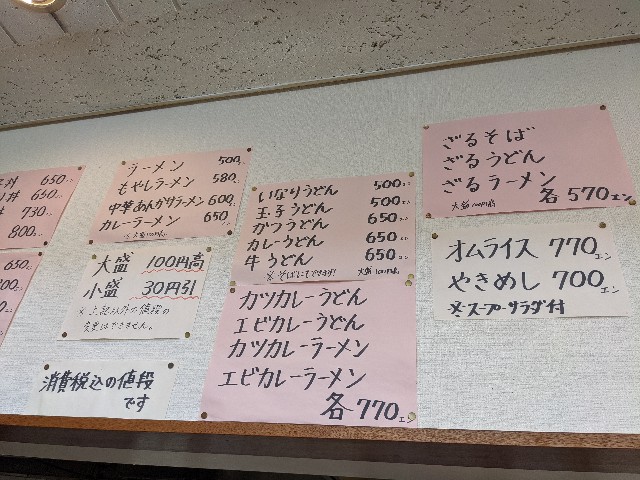 丼 650
丼 650
730
800
650
ラーメン 500エン
もやしラーメン 580エン
中華あんかけラーメン 600エン
カレーラーメン 650エン
大盛100円高
大盛 100円高
小盛 30円引
※上記以外の値段の
変更はできません。
消費税込の値段
です
いなりうどん 500エン
玉子うどん 500エン
かつうどん 650エン
カレーうどん 650エン
牛うどん 650エン
※そばにもできます! 大盛100円高
カツカレーうどん
エビカレーうどん
カツカレーラーメン
エビカレーラーメン
各770エン
ざるそば
ざるうどん
ざるラーメン
大盛100円高 各570エン
オムライス 770エン
やきめし 700エン
※スープ・サラダ付